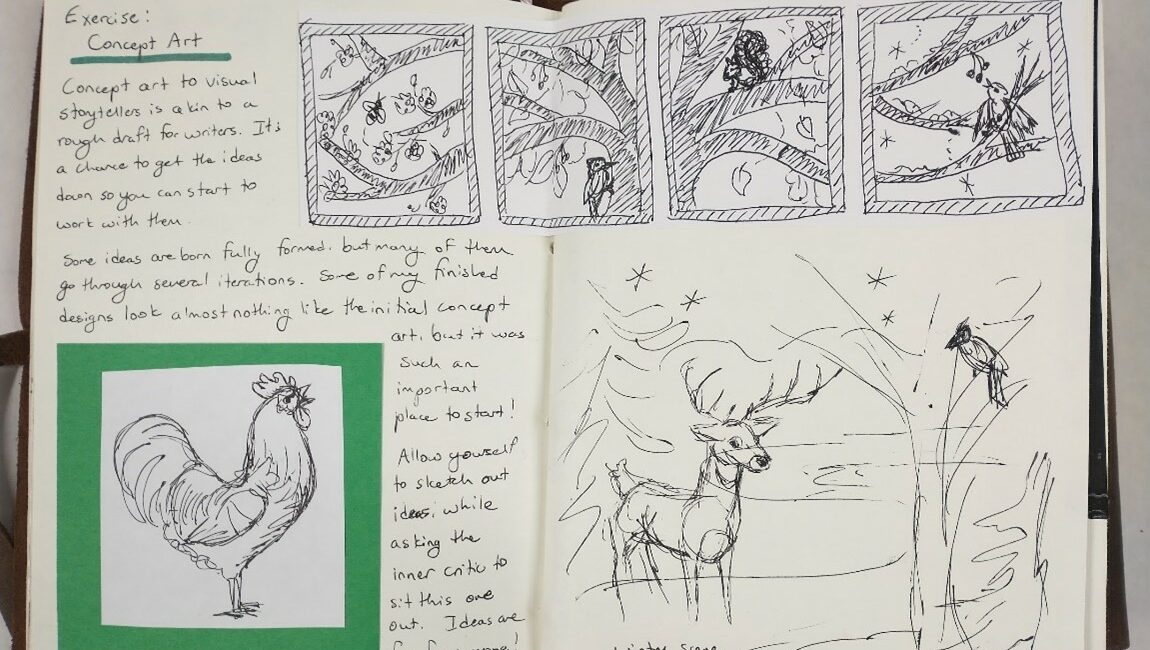 Exercise:
Concept Art
Concept art to visual
storytellers is akin to a
rough draft for writers. It's
a chance to get the ideas
down so you can start to
work with them.
Some ideas are born fully formed, but many of them
go through several iterations. Some of my finished
designs look almost nothing like the initial concept
art, but it was
such an
important
place to start!
Allow yourself
to sketch out
ideas, while
asking the
inner critic to
sit this one
out. Ideas are
Winter Scene